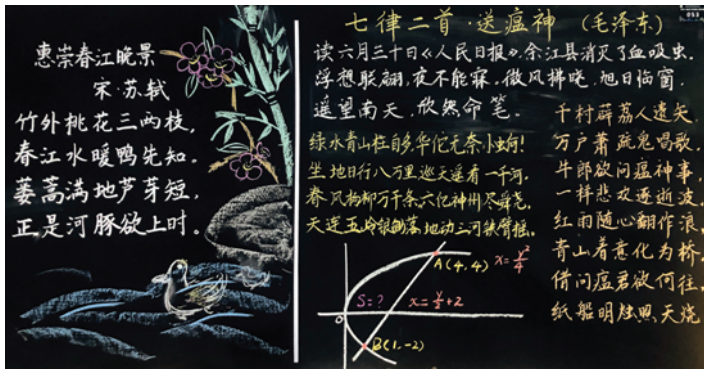 惠崇春江晚景
宋·苏轼
竹外桃花三两枝,
春江水暖鸭先知。
蒌蒿满地芦芽短,
正是河豚欲上时。
七律二首·送瘟神 (毛泽东)
读六月三十日《人民日报》,余江县消灭了血吸虫.
浮想联翩,夜不能寐.微风拂晓,旭日临窗.
遥望南天,欣然命笔.
绿水青山枉自多,华佗无奈小虫何!
坐地日行八万里,巡天遥看一千河.
春风杨柳万千条,六亿神州尽舜尧.
天连五岭银锄落,地动三河铁臂摇.
千村薜荔人遗矢,
万户萧疏鬼唱歌.
牛郎欲问瘟神事,
一样悲欢逐逝波.
红雨随心翻作浪,
青山着意化为桥.
借问瘟君欲何往,
纸船明烛照天烧
A(4,4)
x=y²/4
S=?
x=y/2+2
O
B(1,-2)
053